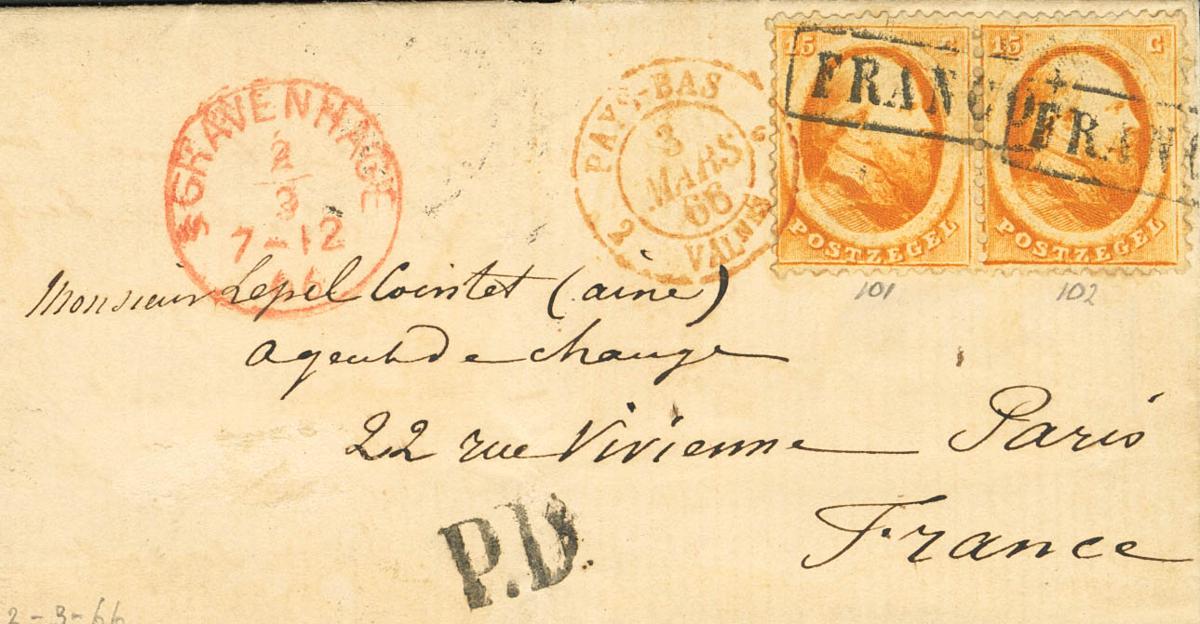 15 C
15 C
FRANCO
FRAN
POSTZEGEL
POSTZEGEL
101
102
'SGRAVENHAGE
2
3
7-12
66
PAYS-BAS
3
MARS
66
2 VALNES 2
Monsieur Lepel Cointet (ainé)
agent de change
22 rue Vivienne Paris
France
P.D.
2-3-66